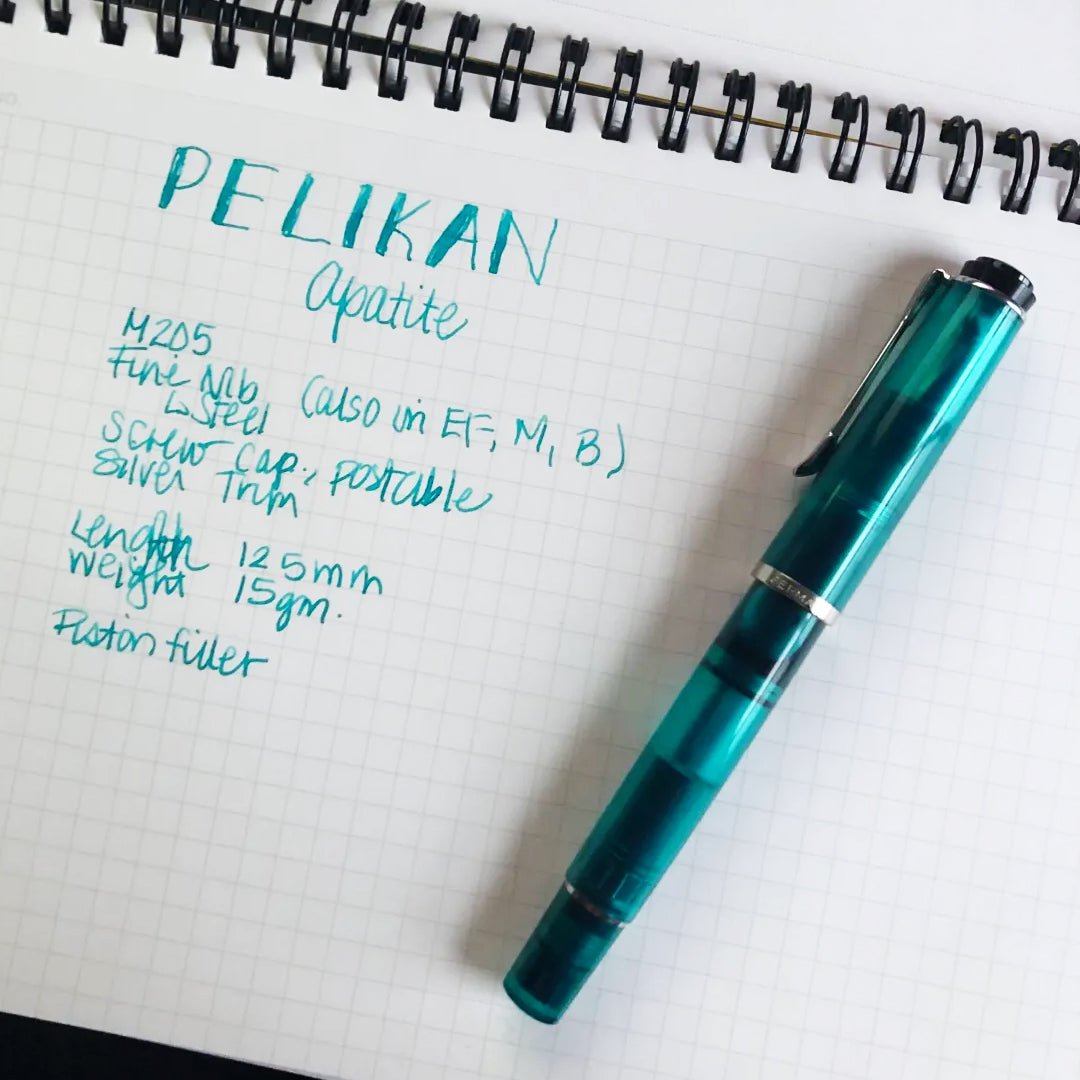 PELIKAN
Apatite
M205
Fine Nib (also in EF, M, B)
↳ Steel
Screw Cap, postable
Silver Trim
Length 125mm
Weight 15gm.
Piston filler